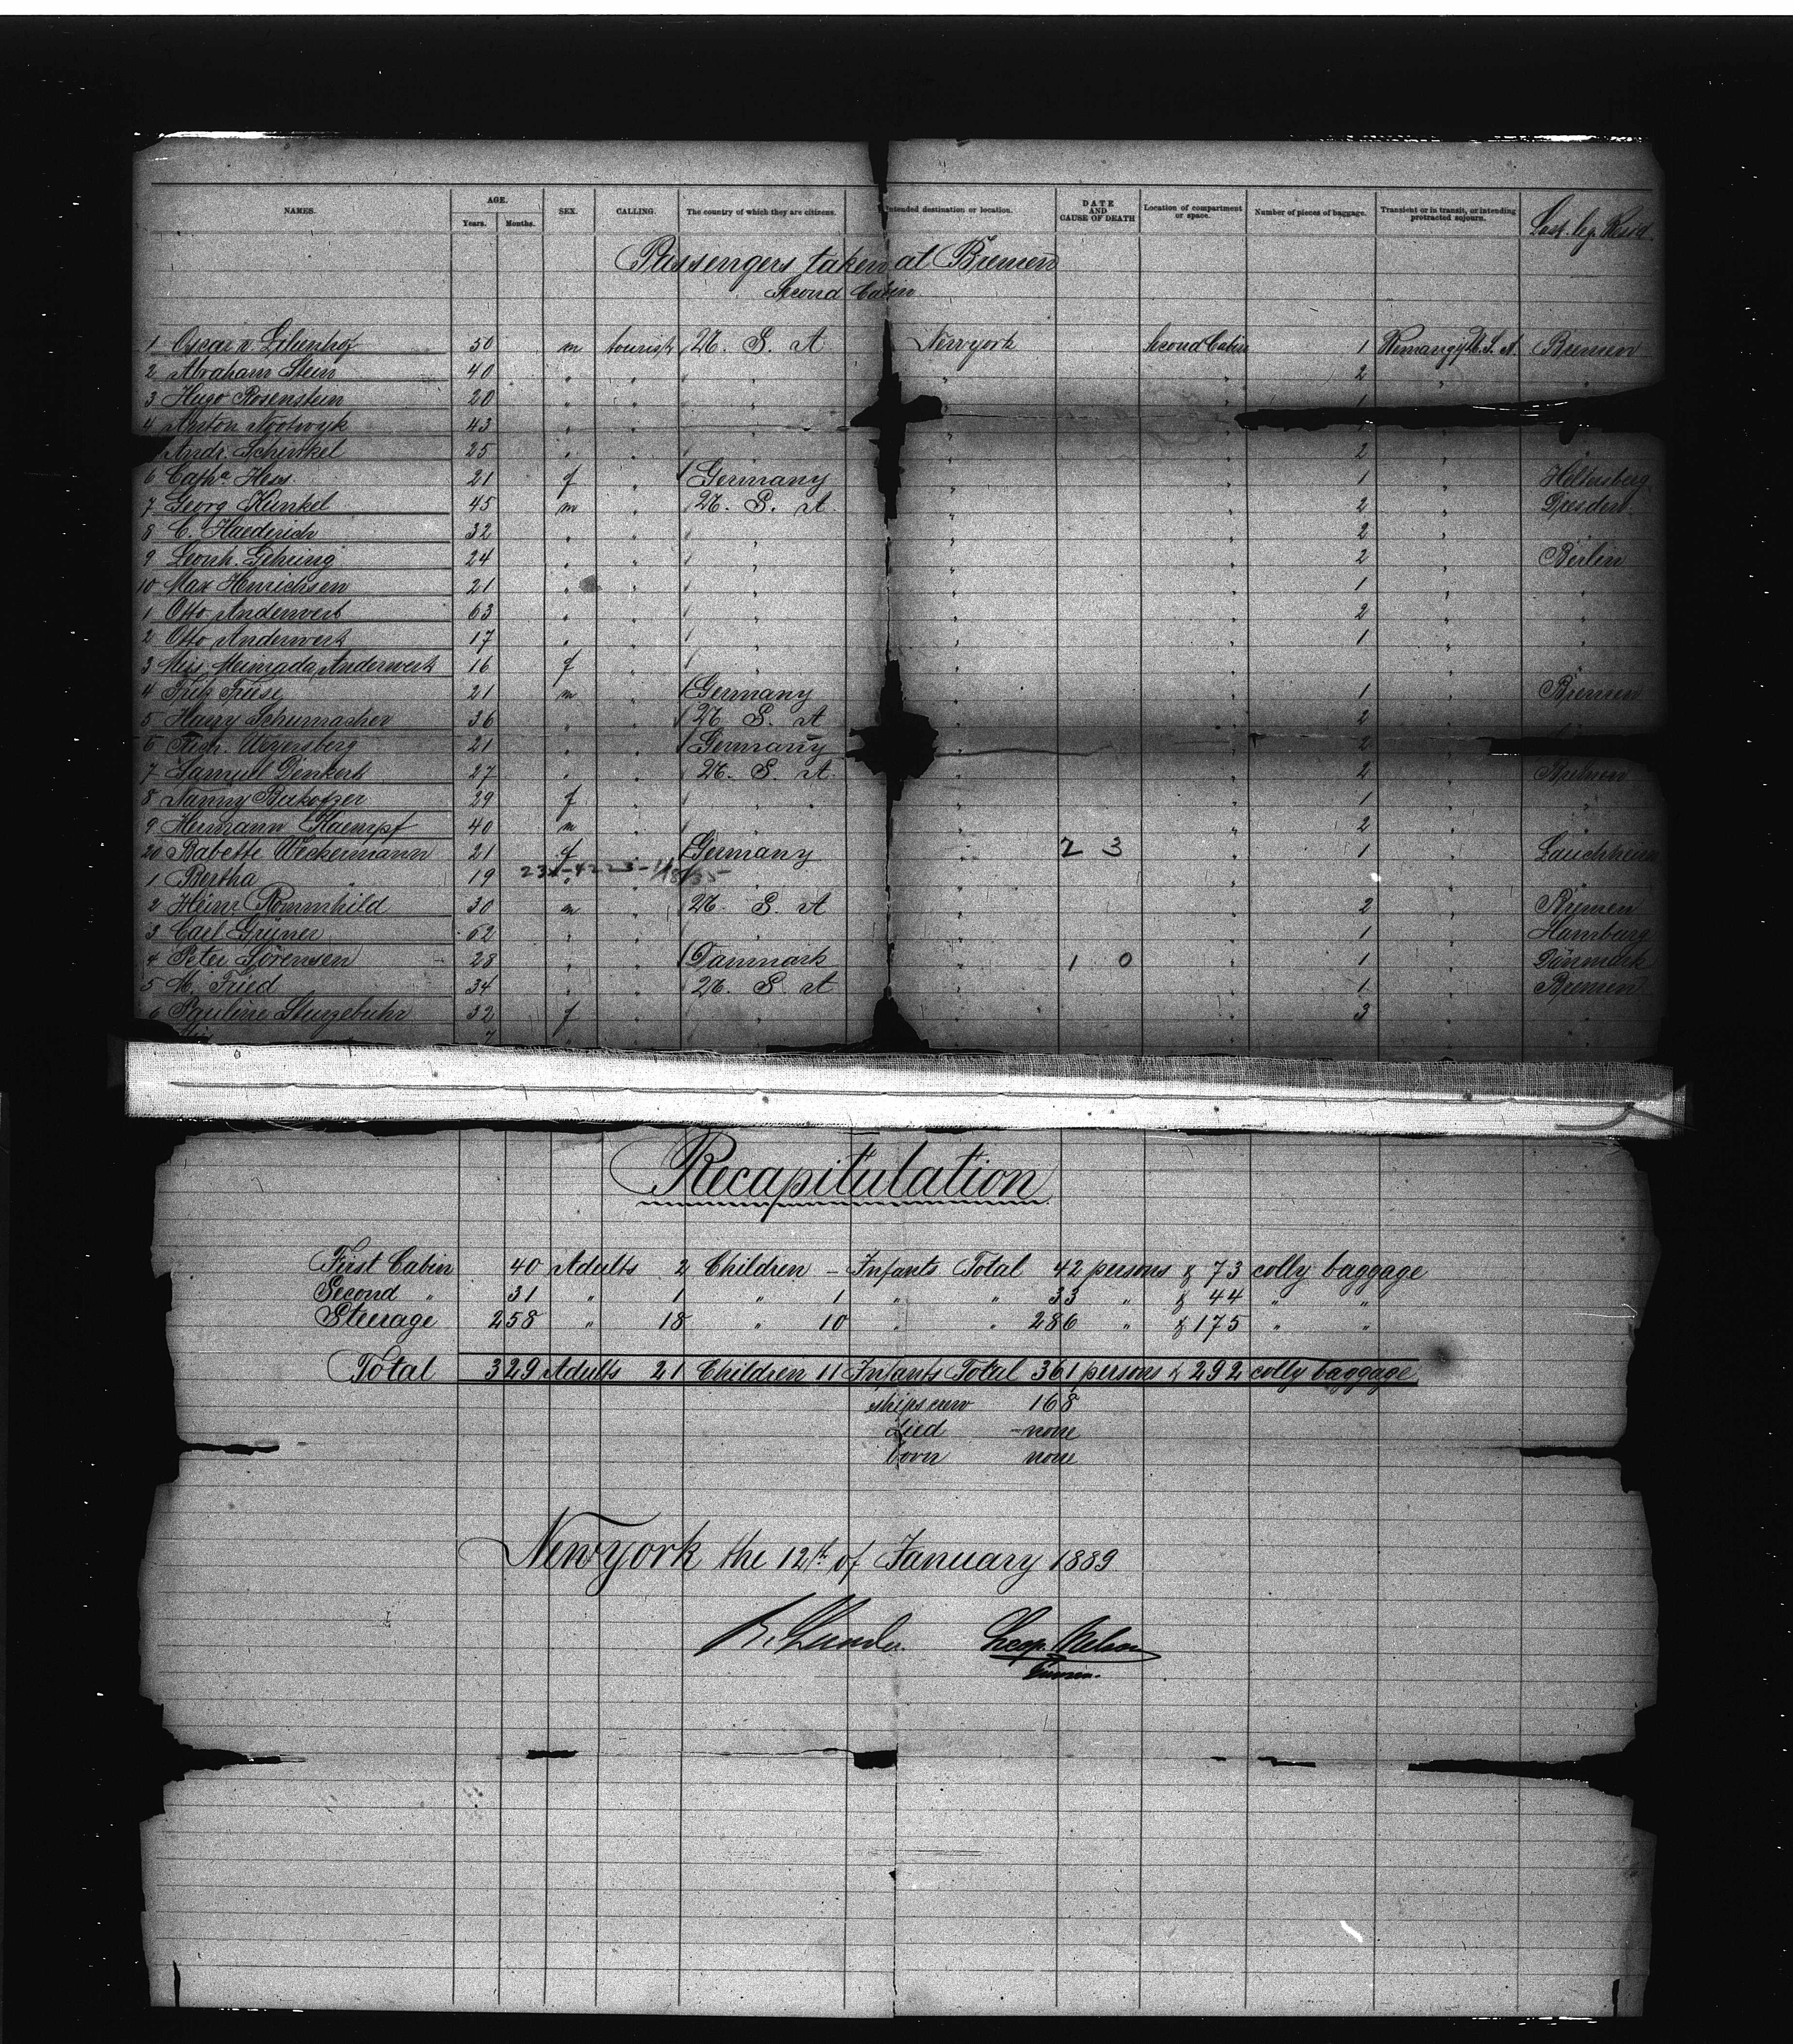 NAMES. AGE. Years. Months. SEX. CALLING. The country of which they are citizens. Intended destination or location. DATE AND CAUSE OF DEATH Location of compartment or space. Number of pieces of baggage. Transient or in transit, or intending protracted sojourn. Last leg. Resid.
Passengers taken at Bremen
Second Cabin
1 Oscar v. Lilienhof 50 m tourist U. S. A Newyork Second Cabin 1 U. S. A. Bremen
2 Abraham Stein 40 " " " " " 2 " "
3 Hugo Rosenstein 20 " " " 1
4 Anton Nootwyk 43 " " " " " 1
Andr. Schinkel 25 " " " " " 2 " "
6 Cath.a Hess 21 f " Germany " " 1 " Heltersberg
7 Georg Kunkel 45 m " U. S. A. " " 2 " Dresden
8 C. Haederich 32 " " " " " 2 " "
9 Leonh. Gehring 24 " " " " " 2 " Berlin
10 Max Hinrichsen 21 " " " " " 1 " "
1 Otto Anderwert 63 " " " " " 2 " "
2 Otto Anderwert 17 " " " " " 1 " "
3 Miss Anderwert 16 f " " " " " "
4 Fritz Friese 21 m " Germany " " 1 " Bremen
5 Harry Schumacher 36 " " U. S. A " " 2 "
6 Rich. Weyersberg 21 " " Germany " " 2
7 Samuel Denkert 27 " " U. S. A. " " 2 " Bremen
8 Nanny 29 f " " " " 1 " "
9 Hermann Kaempf 40 m " " " " 2 " "
20 Babette Weckermann 21 f " Germany " 2 3 " 1 " Lauchheim
1 Bertha " 19 " " " " " " "
2 Heinr. Rommhild 30 m " U. S. A " " 2 " Bremen
3 Carl Grüner 62 " " " " " 1 " Hamburg
4 Peter Sörensen 28 " " Danmark " 1 0 " 1 " Danmark
5 M. Fried 34 " " U. S. A " " 1 " Bremen
6 Pauline Sturzebuhr 32 f " " " " 3 " "
7
Recapitulation
First Cabin 40 Adults 2 Children - Infants Total 42 persons & 73 colly baggage
Second " 31 " 1 " 1 " " 33 " & 44 " "
Steerage 258 " 18 " 10 " " 286 " & 175 " "
Total 329 Adults 21 Children 11 Infants Total 361 persons & 292 colly baggage
ships crew 168
Died - none
born none
Newyork the 12th of January 1889